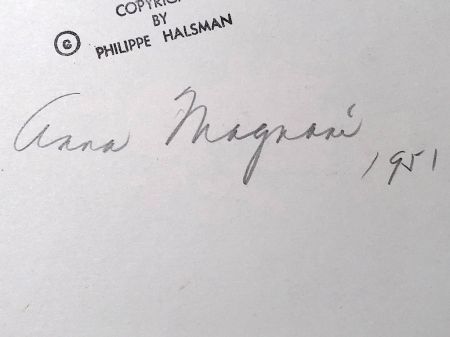 COPYRIGHT
BY
© PHILIPPE HALSMAN
Anna Magnani
1951